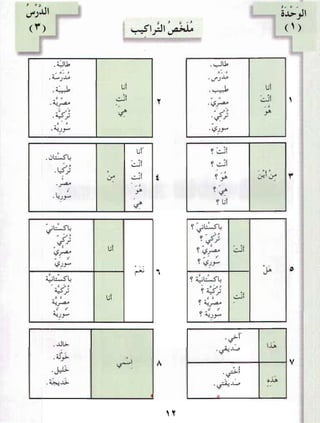 الوَحْدَةُ
(١)
مُلَخَّصُ التَّراكيبِ
الدَّرْسُ
(٣)
١
أنا
أنْتَ
هُوَ
طالب.
مدرس.
طبيب.
مصري.
تركي.
سوري.
٢
أنا
أنْتِ
هِيَ
طالبة.
مدرسة.
طبيبة.
مصرية.
تركية.
سورية.
٣
مِنْ أيْنَ
أنْتَ ؟
أنْتِ ؟
هُوَ ؟
هِيَ ؟
أنا ؟
٤
أنا
أنْتَ
أنْتِ
هُوَ
هِيَ
مِنْ
باكستان.
تركيا.
مصر.
سوريا.
٥
هَلْ
أنْتَ
باكستاني ؟
تركي ؟
مصري ؟
سوري ؟
أنْتِ
باكستانية ؟
تركية ؟
مصرية ؟
سورية ؟
٦
نَعَمْ
أنا
باكستاني
تركي
مصري
سوري
أنا
باكستانية
تركية
مصرية
سورية
٧
هٰذا
أخي.
صديقي.
هٰذِهِ
أختي.
صديقتي.
٨
اسْمي
خالد.
خولة.
خليل.
خديجة.
١٢